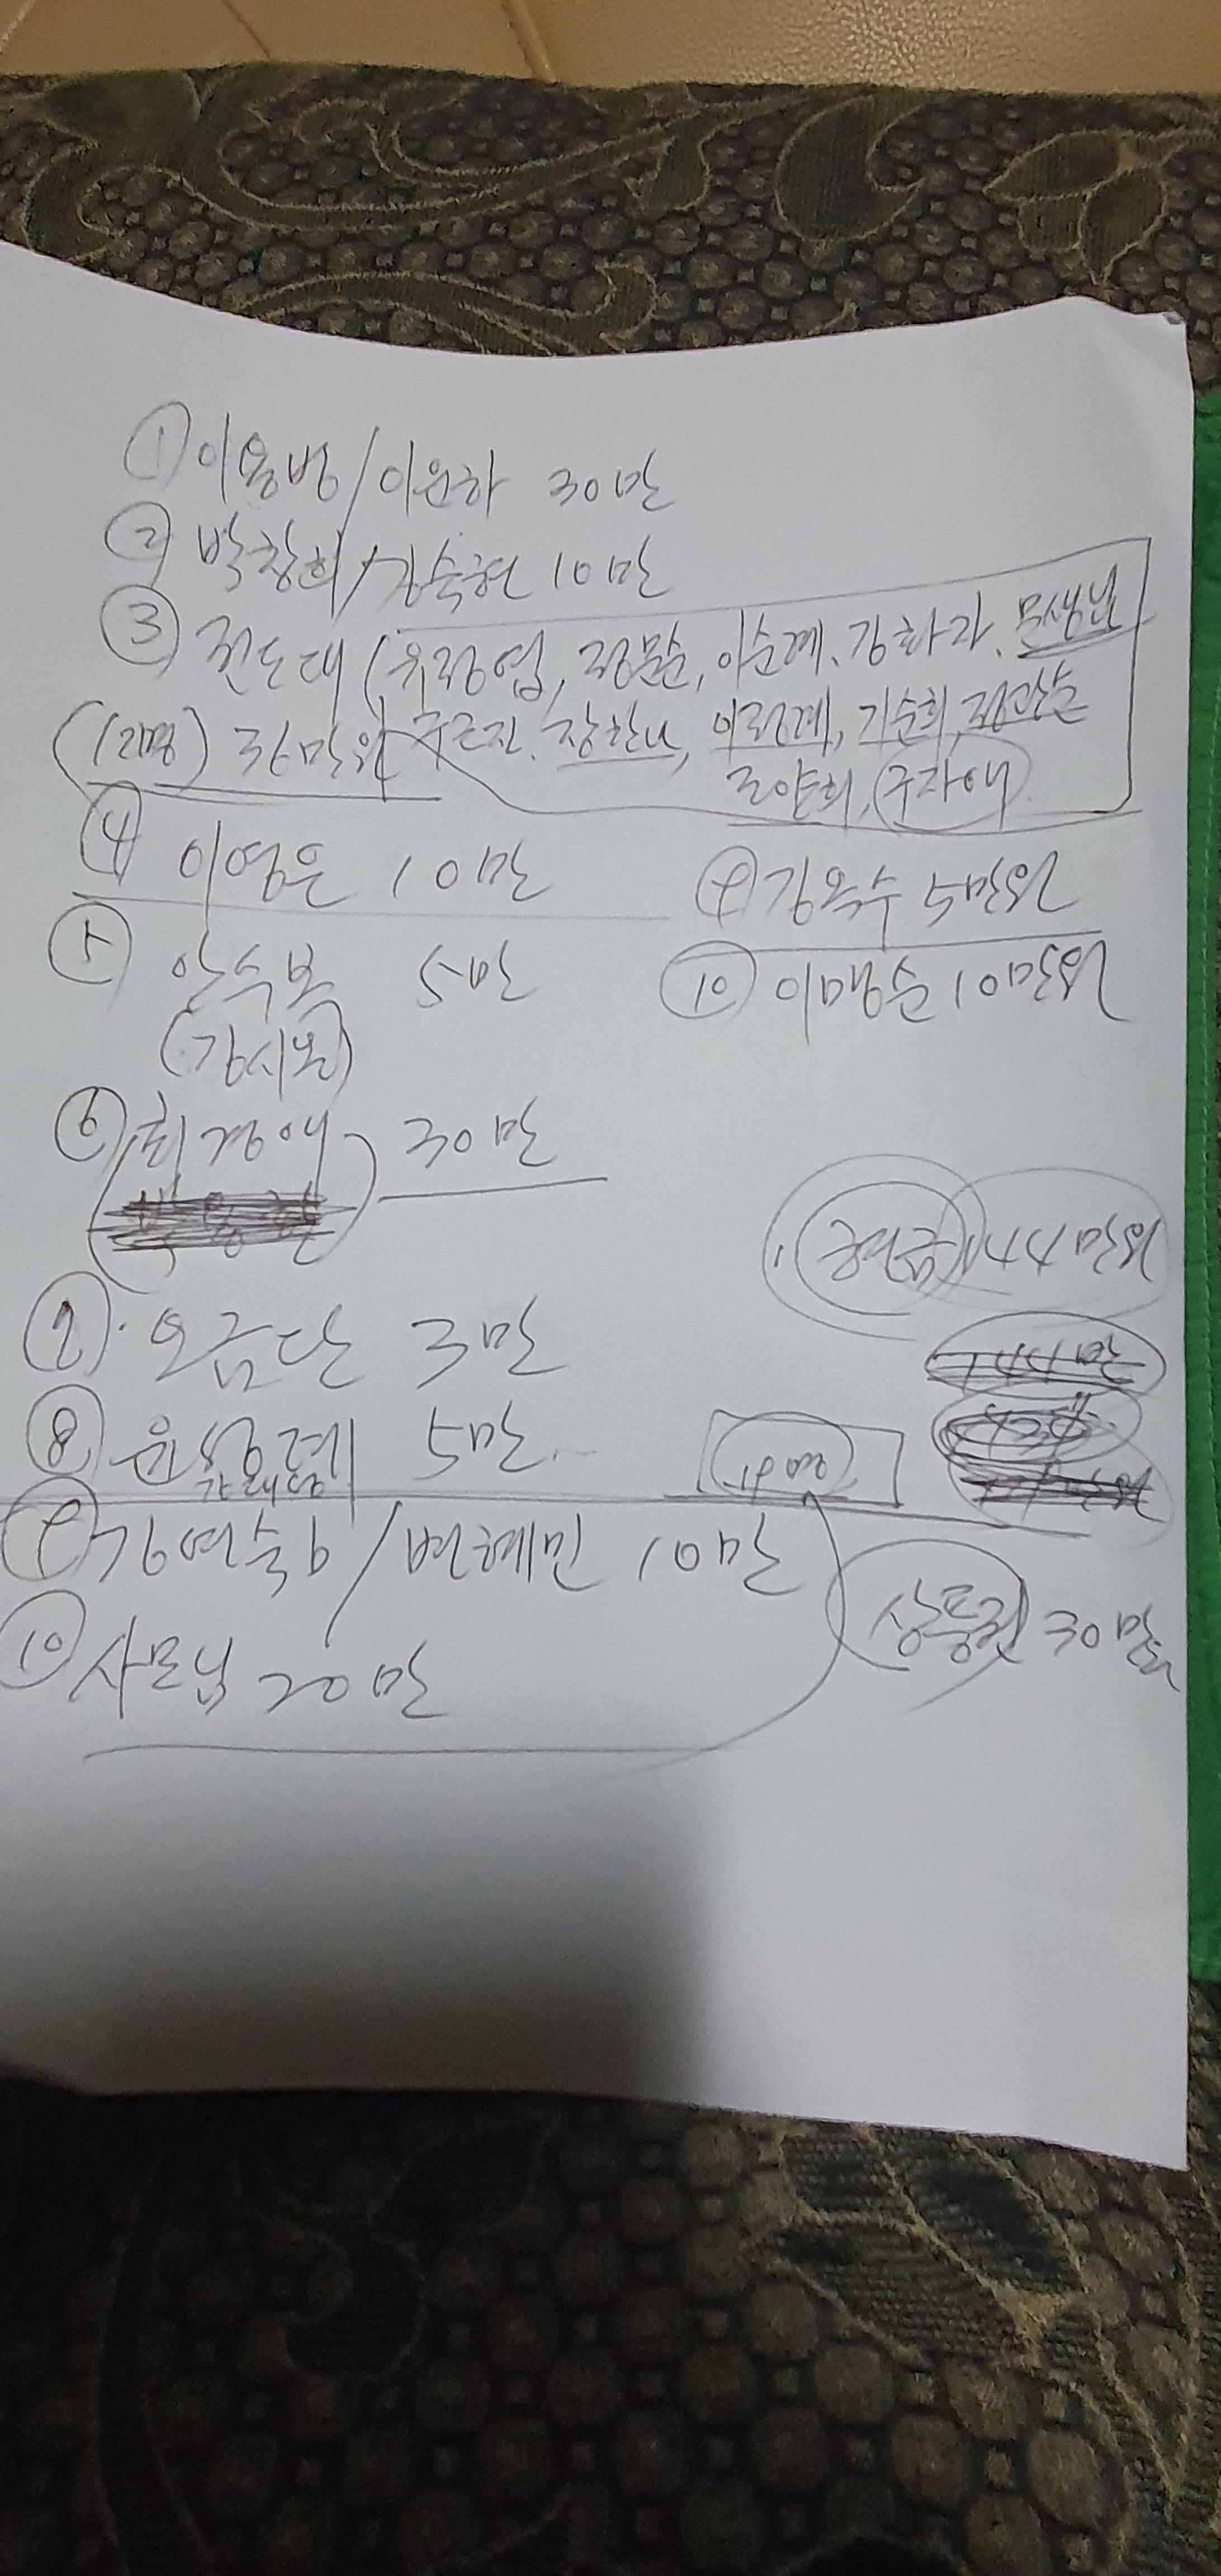 ① 이용범/이원하 30만
② 박창희/김숙현 10만
③ 전도대 (유정엽, 정문순, 이순례, 김화자, 문생님
(12명) 36만원 주은진, 장한나, 이정례, 기순희, 정관순
조양희, 주자애
④ 이영은 10만
⑨ 김옥수 5만원
⑤ 안수복 5만
⑩ 이맹순 10만원
(김시몬)
⑥ 최경애 30만
헌금 144만원
⑦ 오금단 3만
⑧ 윤 5만
⑨ 김연숙b/변혜민 10만
상품권 30만
⑩ 사모님 20만